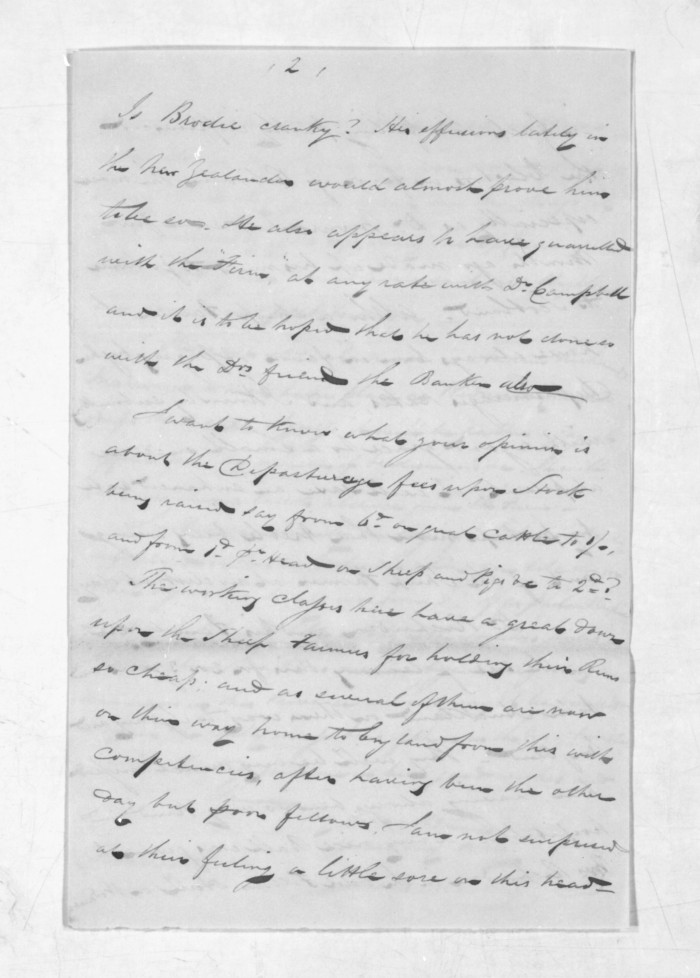 2
Is Brodie cranky? His effusions lately in
the New Zealander would almost prove him
to be so. He also appears to have quarrelled
with the "Firm" at any rate with Dr. Campbell
and it is to be hoped that he has not done so
with the Drs friend the Banker also
I want to know what your opinion is
about the Depasturage fees upon Stock
being raised say from 6d. on great Cattle to 1/-,
and from 1d. pr Head on Sheep and Pigs &c to 2d.?
The working classes here have a great down
upon the Sheep Farmers for holding their Runs
so cheap. and as several of them are now
on their way home to England from this with
competencies, after having been the other
day but poor fellows. I am not surprised
at their feeling a little sore on this head—